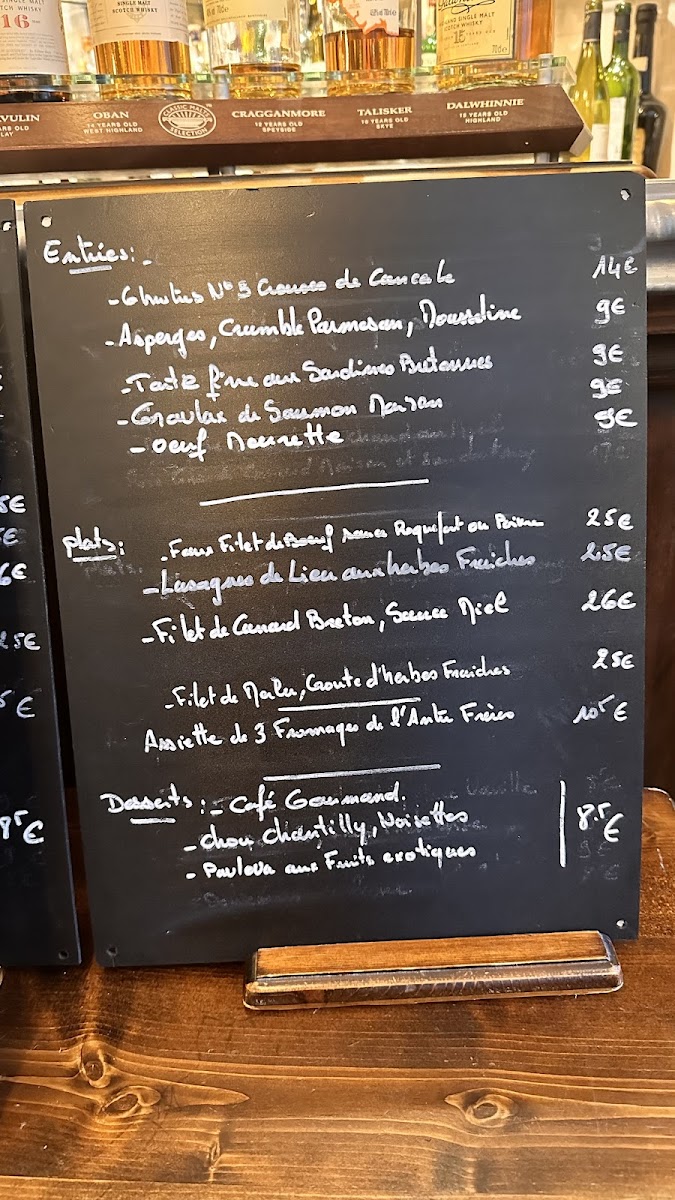 16
SINGLE MALT
SCOTCH WHISKY
70cl
SINGLE MALT
15 YEARS OLD
70cl
VULIN
OBAN
14 YEARS OLD
WEST HIGHLAND
CLASSIC MALTS
SELECTION
CRAGGANMORE
12 YEARS OLD
SPEYSIDE
TALISKER
10 YEARS OLD
SKYE
DALWHINNIE
15 YEARS OLD
HIGHLAND
Entrées:-
- 6 huitres N° 5 Creuses de Cancale 14€
- Asperges, Crumble Parmesan, Mousseline 9€
- Tarte fine aux Sardines Bretonnes 9€
- Gravlax de Saumon Maison 9€
- oeuf Meurette 9€
plats: - Faux Filet de Boeuf sauce Roquefort ou Poivre 25€
- Lasagnes de Lieu aux herbes Fraiches 25€
- Filet de Canard Breton, Sauce Miel 26€
- Filet de Merlu, Croute d'herbes Fraiches 25€
Assiette de 3 Fromages de l'Antre Frères 10€
Desserts: - Café Gourmand.
- chou chantilly, Noisettes 8,5€
- Pavlova aux Fruits exotiques